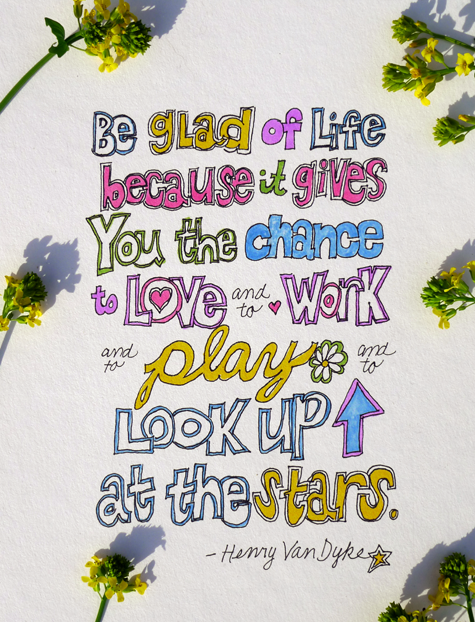 Be glad of Life
because it gives
You the chance
to Love and to Work
and to play and to
Look up
at the stars.
- Henry Van Dyke